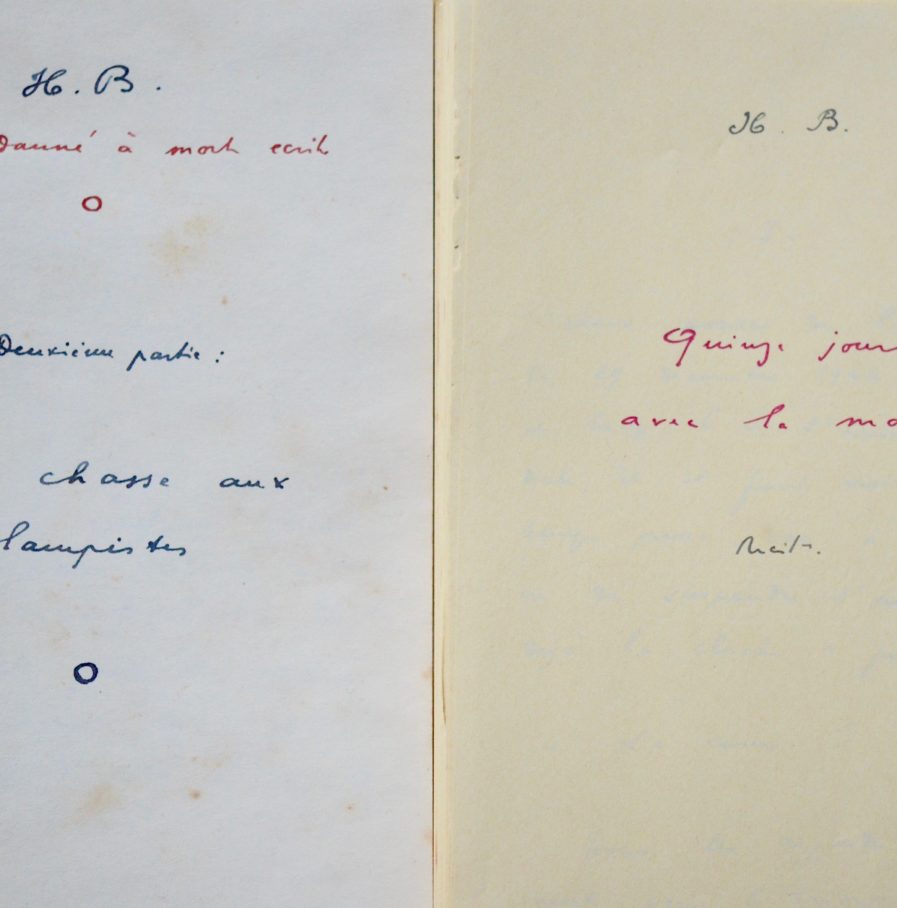 H. B.
damné à mort ecrit
o
Deuxième partie :
chasse aux
lampistes
o
H. B.
Quinze jour
avec la mo
Récits.